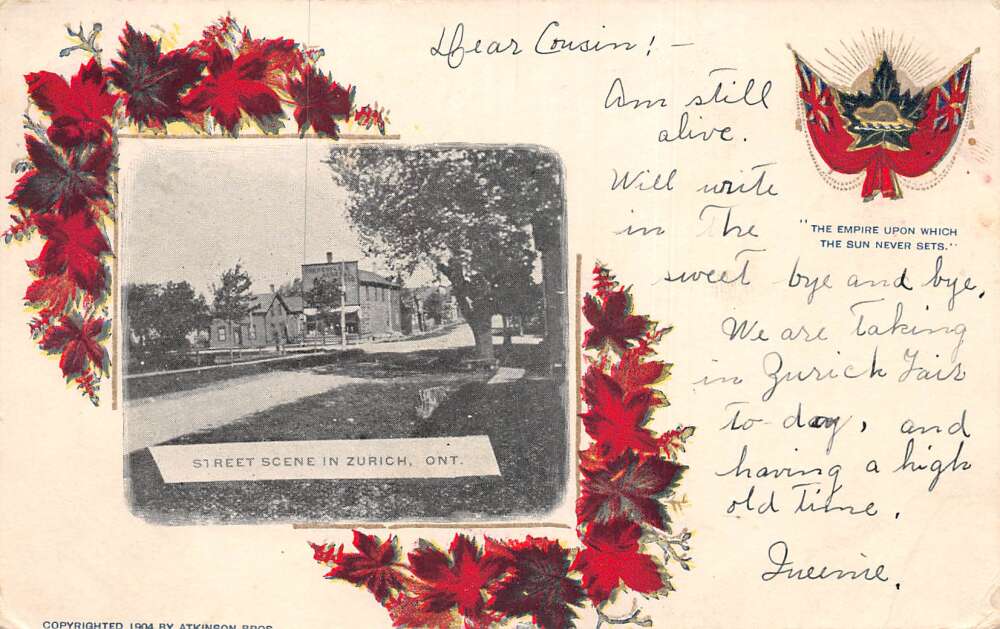 Dear Cousin! –
Am still
alive.
Will write
in The
sweet bye and bye,
We are taking
in Zurick Fair
to-day, and
having a high
old time.
"THE EMPIRE UPON WHICH
THE SUN NEVER SETS."
STREET SCENE IN ZURICH, ONT.
COPYRIGHTED 1904 BY ATKINSON BROS